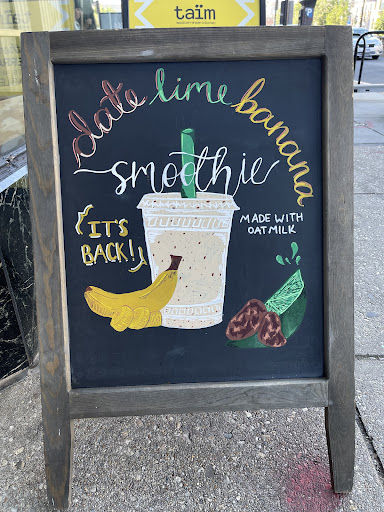 taïm
date lime banana
smoothie
IT'S
BACK!
MADE WITH
OATMILK